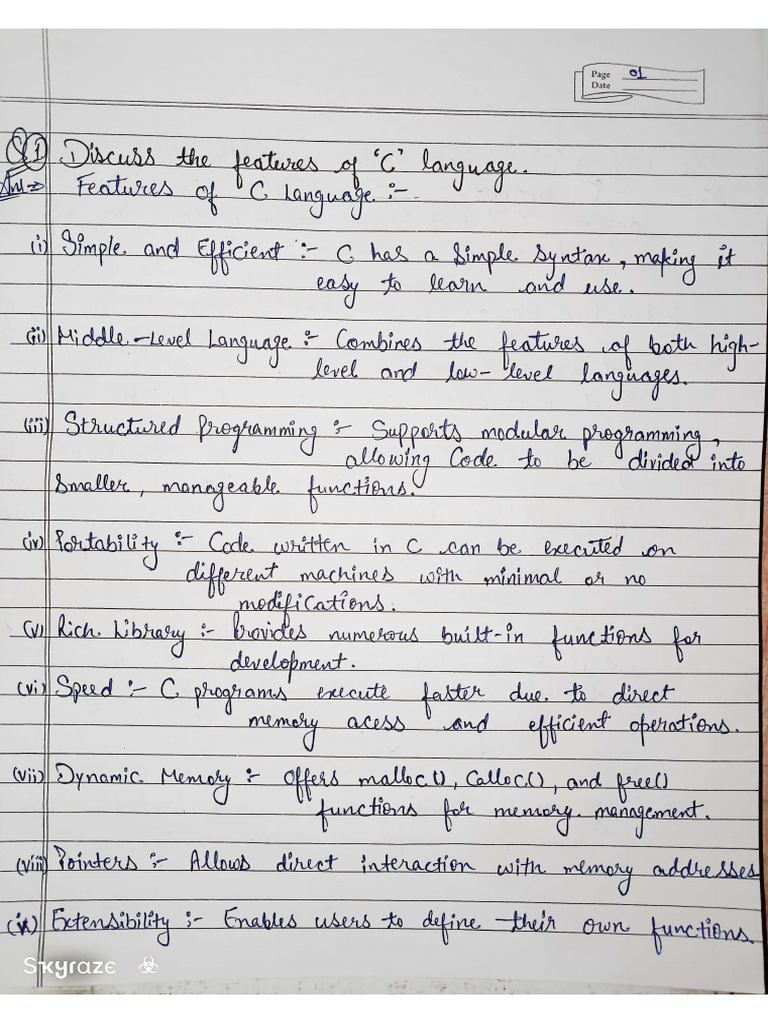 Page 01
Date
Q1 Discuss the features of 'C' language.
Ans ⇒ Features of C Language :-
(i) Simple and Efficient :- C has a simple syntax, making it
easy to learn and use.
(ii) Middle-Level Language :- Combines the features of both high-
level and low-level languages.
(iii) Structured Programming :- Supports modular programming,
allowing Code to be divided into
smaller, manageable functions.
(iv) Portability :- Code written in C can be executed on
different machines with minimal or no
modifications.
(v) Rich Library :- Provides numerous built-in functions for
development.
(vi) Speed :- C programs execute faster due to direct
memory acess and efficient operations.
(vii) Dynamic Memory :- Offers malloc(), Calloc(), and free()
functions for memory management.
(viii) Pointers :- Allows direct interaction with memory addresses
(ix) Extensibility :- Enables users to define their own functions.
Skyraze ☣